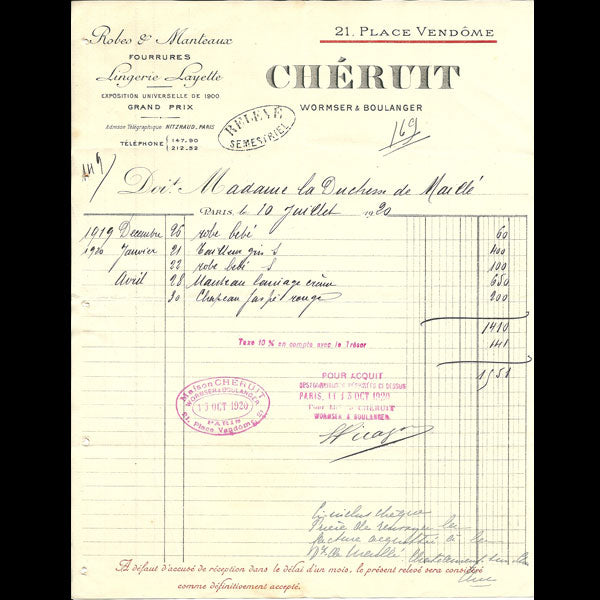 Robes & Manteaux
FOURRURES
Lingerie Layette
EXPOSITION UNIVERSELLE DE 1900
GRAND PRIX
Adresse Télégraphique NITZRAUD. PARIS
TÉLÉPHONE 147.90
212.52
21. PLACE VENDÔME
CHÉRUIT
WORMSER & BOULANGER
RELEVÉ
SEMESTRIEL
169
Doit Madame la Duchesse de Maillé
PARIS, le 10 Juillet 1920
1919 Decembre 26 robe bébé 60
1920 Janvier 21 tailleur gris S 400
22 robe bébé S 100
Avril 28 Manteau lainage crème 650
30 Chapeau rouge 200
1410
Taxe 10 % en compte avec le Trésor 141
1551
POUR ACQUIT
PARIS, LE 15 OCT 1920
CHÉRUIT
WORMSER & BOULANGER
Maison CHÉRUIT
WORMSER & BOULANGER
15 OCT 1920
PARIS
21, Place Vendôme, 21
Ci inclus chèque
Prière de renvoyer la
facture acquittée à la
Dsse de Maillé
A défaut d'accusé de réception dans le délai d'un mois, le présent relevé sera considéré
comme définitivement accepté.